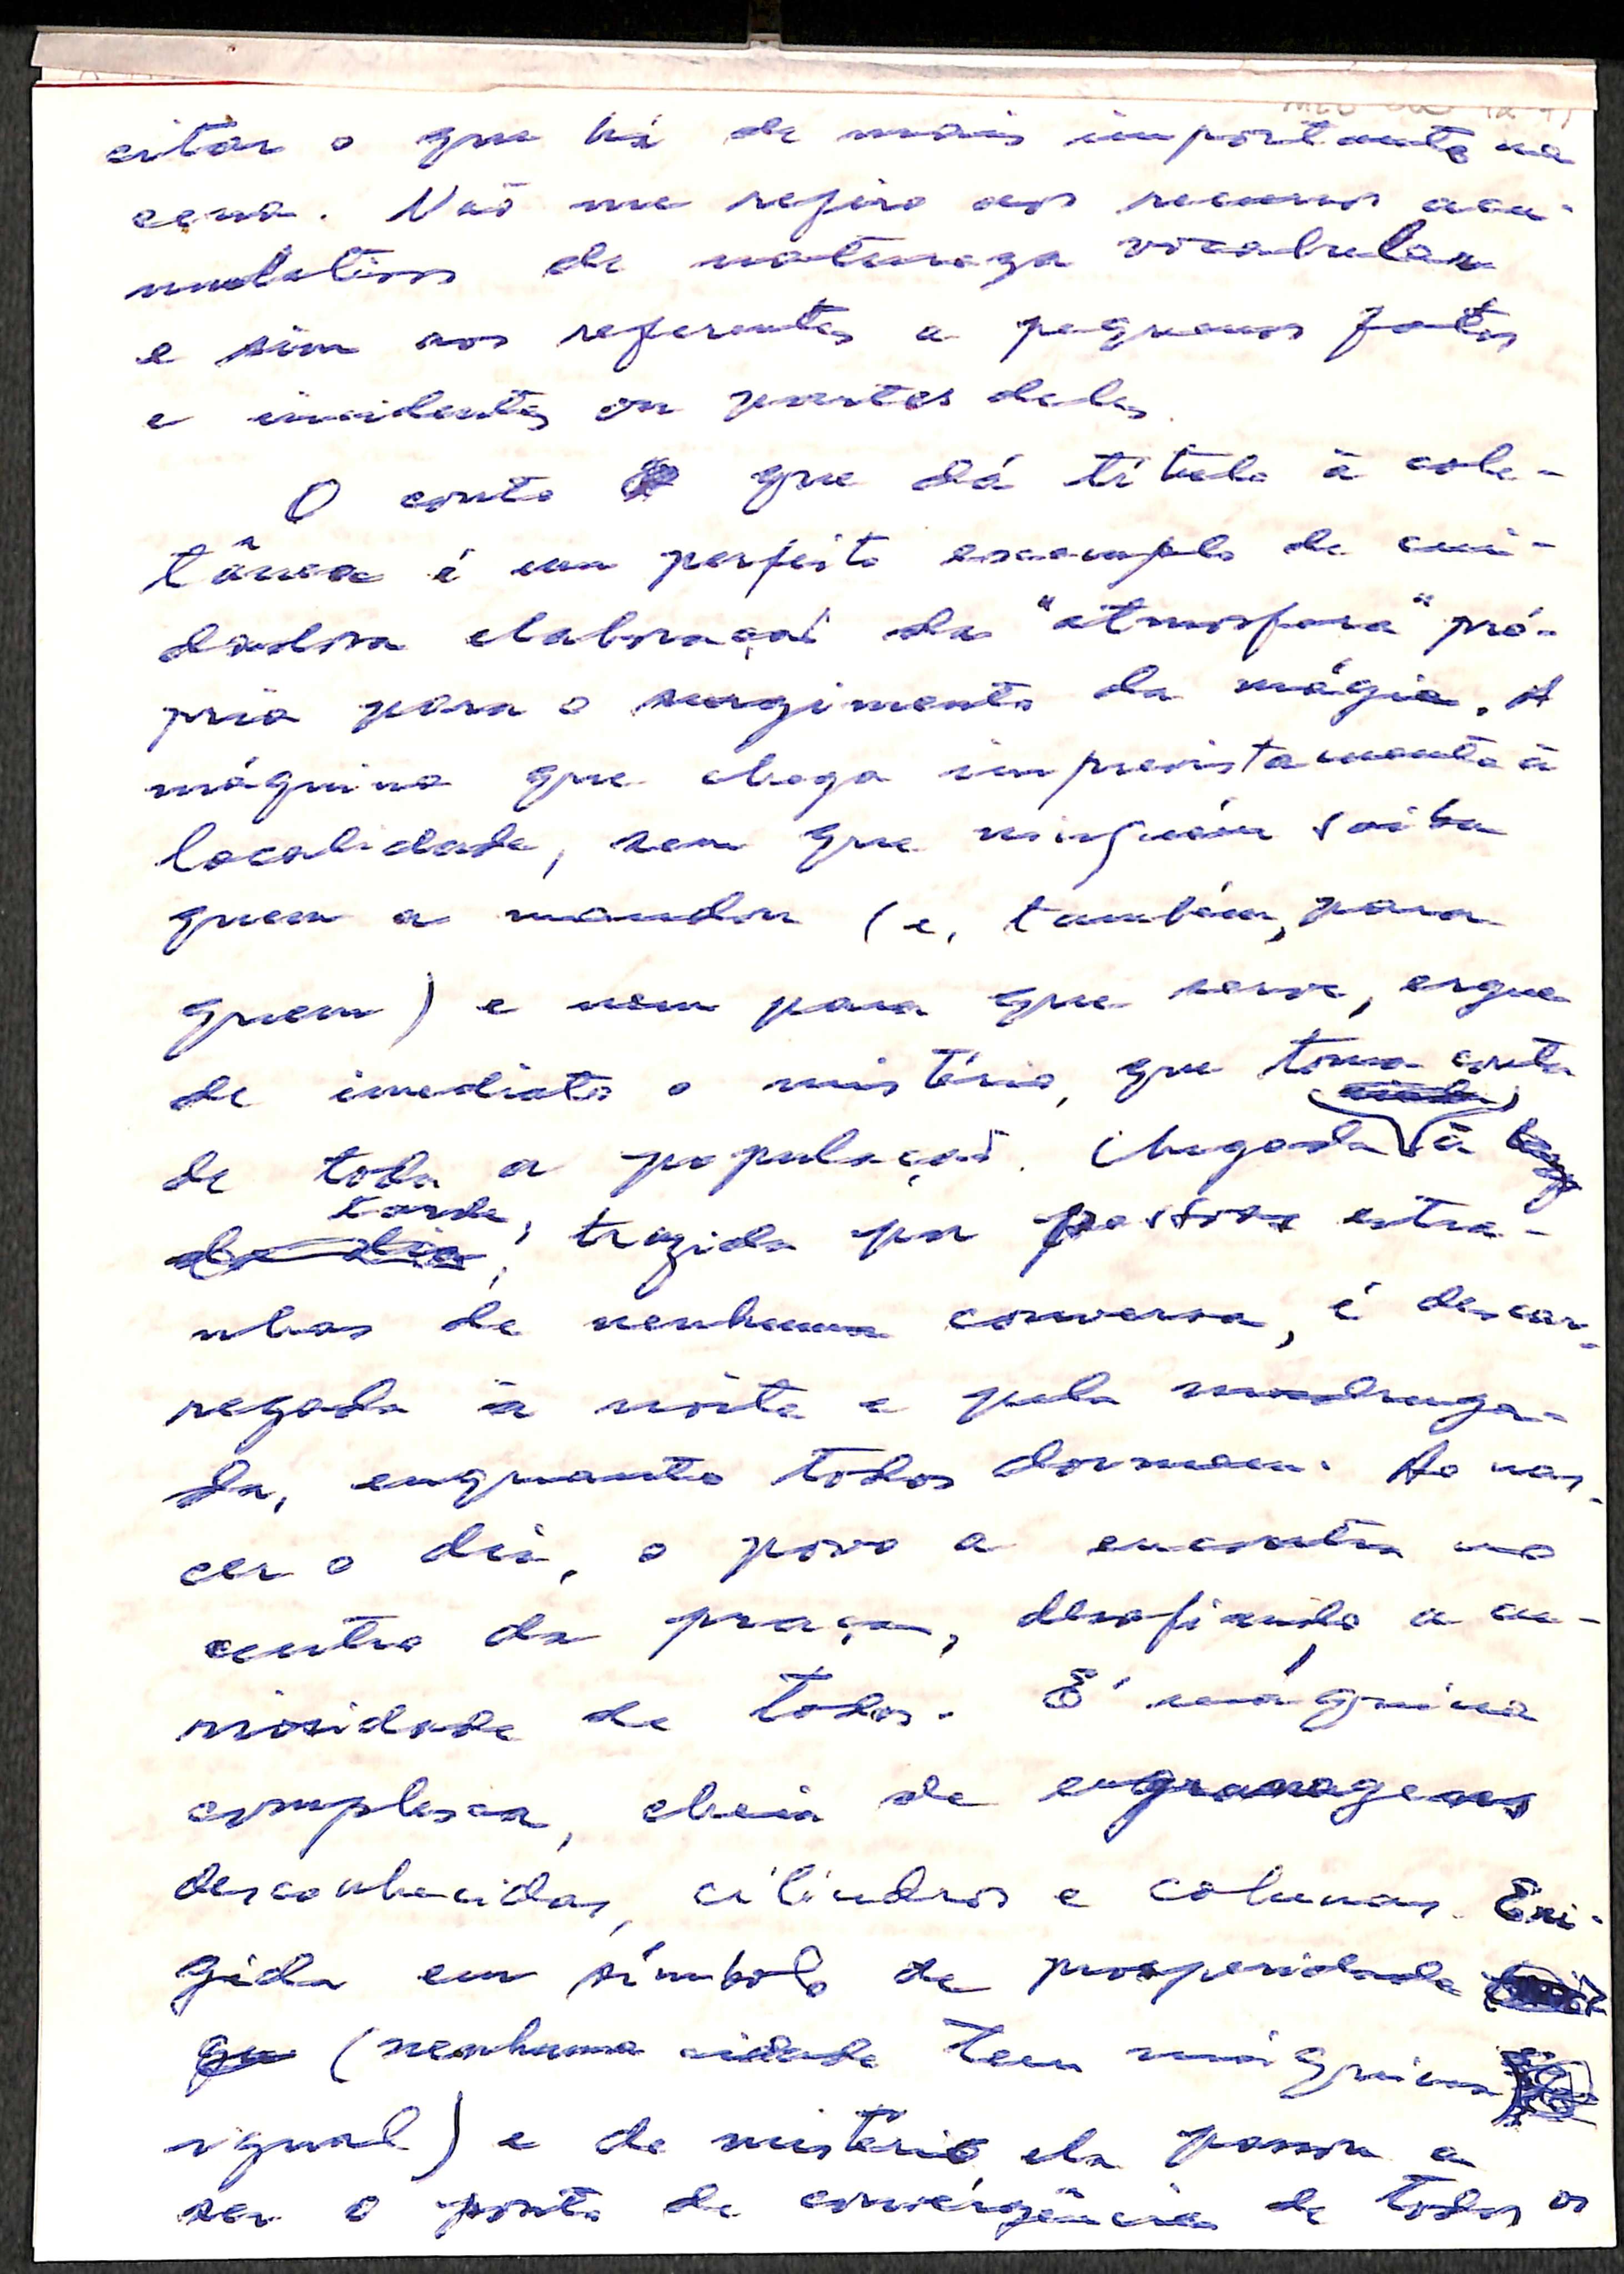 citar o que há de mais importante na
cena. Não me refiro aos recursos acu-
mulativos de natureza vocabular
e sim aos referentes a pequenos fatos
e incidentes ou partes deles.
O conto que dá título à cole-
tânea é um perfeito exemplo de cui-
dadosa elaboração da "atmosfera" pró-
pria para o surgimento da mágia. A
máquina que chega imprevistamente à
localidade, sem que ninguém saiba
quem a mandou (e, também, para
quem) e nem para que serve, ergue
de imediato o mistério, que toma conta
de toda a população. Chegada à
tarde, trazida por pessoas estra-
nhas de nenhuma conversa, é descar-
regada à noite e pela madruga-
da, enquanto todos dormem. Ao nas-
cer o dia, o povo a encontra no
centro da praça, desafiando a cu-
riosidade de todos. É máquina
complexa, cheia de engranagens
desconhecidas, cilindros e colunas. Eri-
gida em símbolo de prosperidade
(nenhuma cidade tem máquina
igual) e de mistério ela passa a
ser o ponto de convergência de todos os